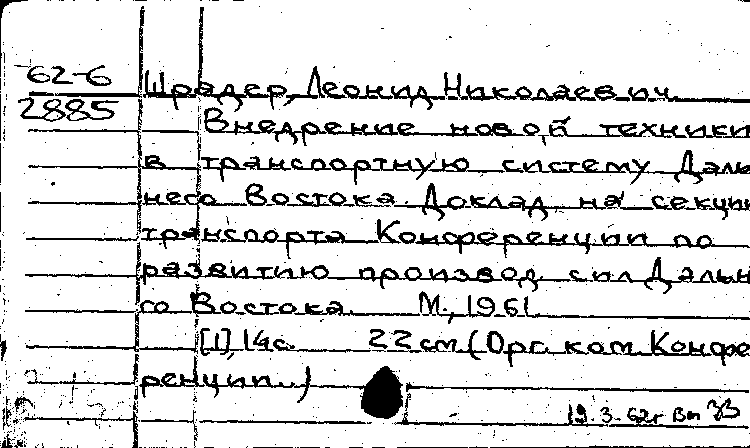 62-6
2885
Шрадер, Леонид Николаевич.
Внедрение новой техники
в транспортную систему Даль
него Востока. Доклад на секции
транспорта Конференции по
развитию производ. сил Дальн
го Востока. М., 1961.
[1], 14 с. 22 см (Орг. ком. Конфе
ренции...)
19.3.62г Вт